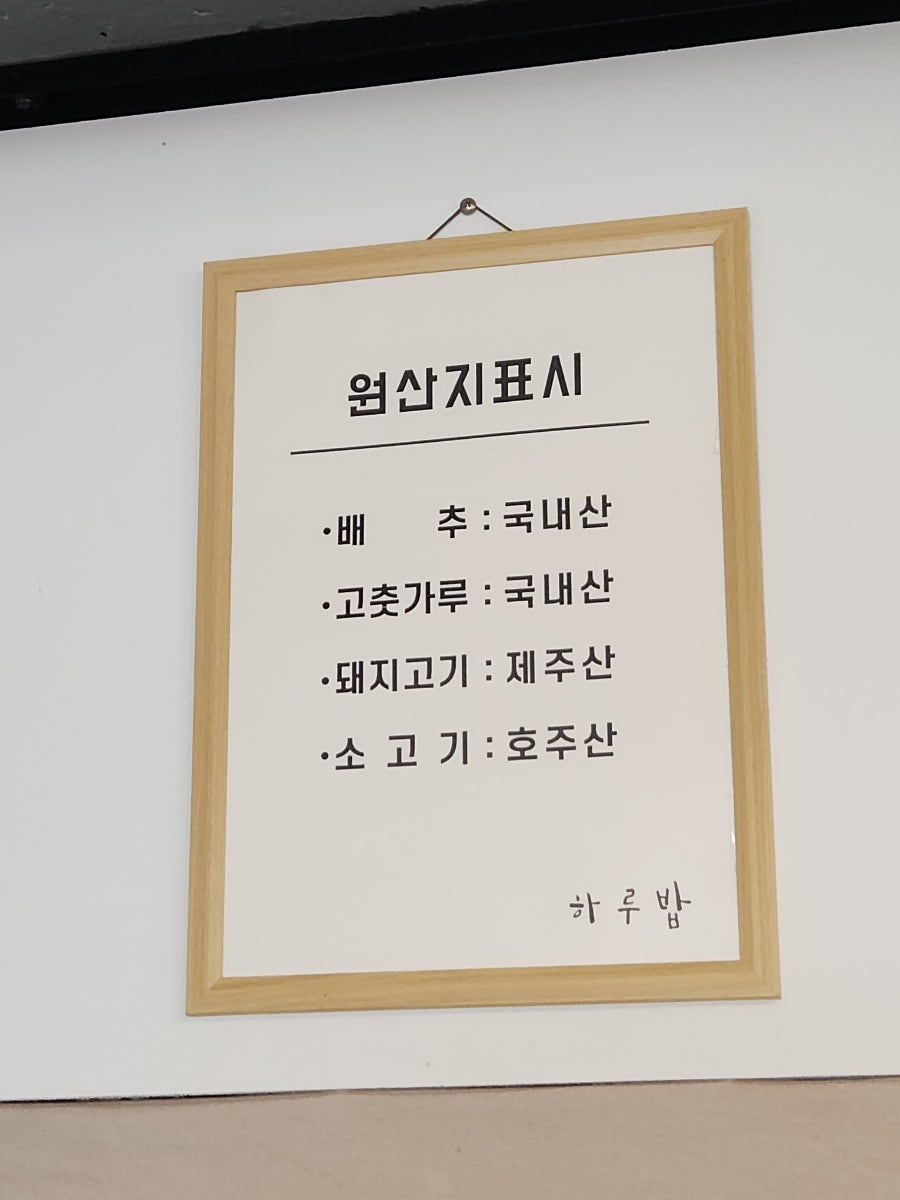 원산지표시
·배 추 : 국내산
·고춧가루 : 국내산
·돼지고기 : 제주산
·소 고 기 : 호주산
하루밥